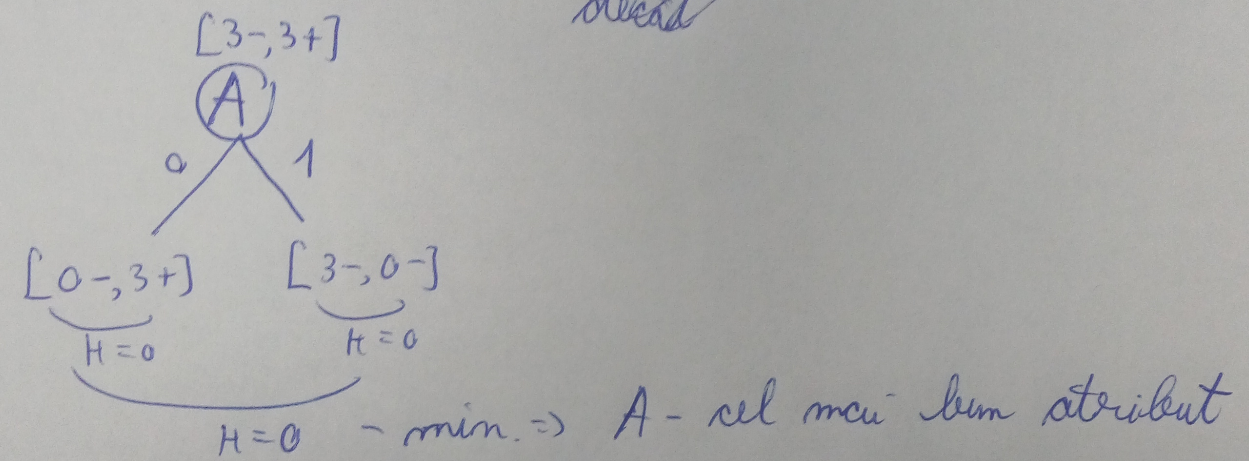 [3-,3+]
A
0 1
[0-,3+] [3-,0-]
H=0 H=0
H=0 - min. => A - cel mai bun atribut